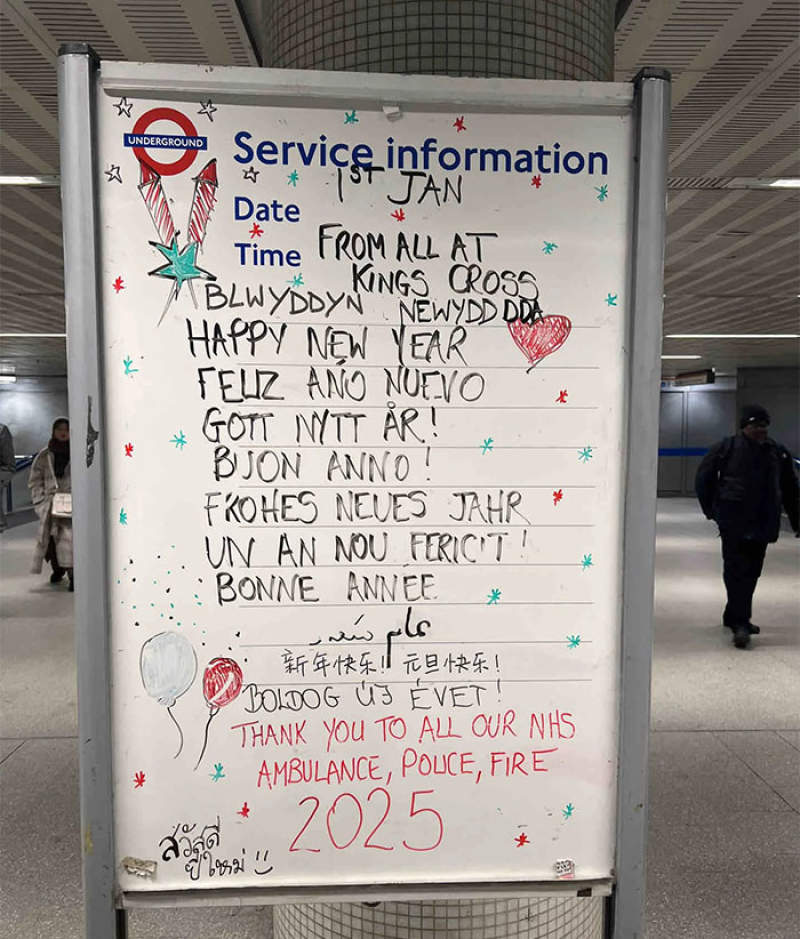 UNDERGROUND
Service information
1ST JAN
Date
Time
FROM ALL AT
KINGS CROSS
BLWYDDYN NEWYDD DDA
HAPPY NEW YEAR
FELIZ AÑO NUEVO
GOTT NYTT ÅR!
BUON ANNO!
FROHES NEUES JAHR
UN AN NOU FERICIT!
BONNE ANNÉE
عام سعيد
新年快乐! 元旦快乐!
BOLDOG ÚJ ÉVET!
THANK YOU TO ALL OUR NHS
AMBULANCE, POLICE, FIRE
2025
สวัสดี
ปีใหม่ :)